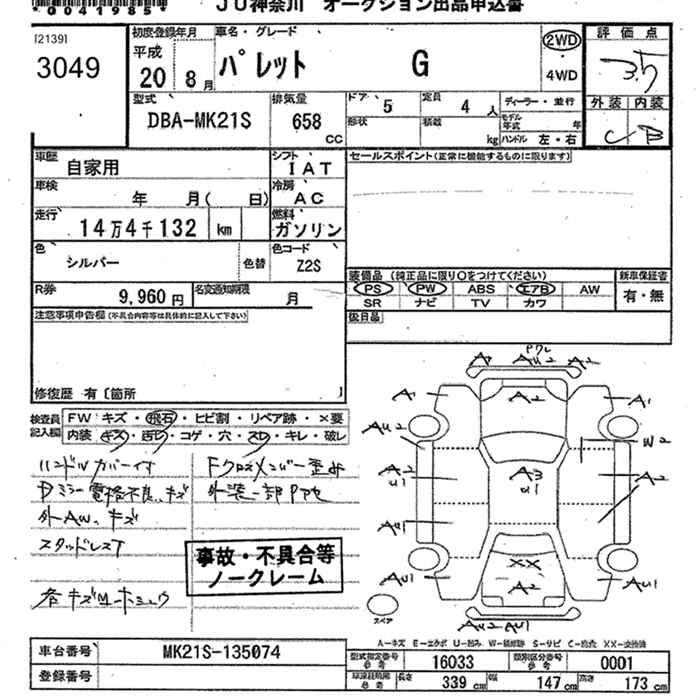 *0041985*
JU神奈川 オークション出品申込書
[2139]
3049
初度登録年月
平成
20年 8月
車名・グレード
パレット G
2WD
4WD
評価点
3.5
外装 内装
C B
型式
DBA-MK21S
排気量
658 cc
ドア 5
定員 4人
形状
積載 kg
ディーラー・並行
モデル年式 年
ハンドル 左・右
車歴 自家用
シフト IAT
車検 年 月( 日)
冷房 AC
走行 14万4千132 km
燃料 ガソリン
色 シルバー 色替
色コード Z2S
R券 9,960円
名変通知期限 月
セールスポイント(正常に機能するものに限ります)
装備品 (純正品に限り○をつけてください)
PS PW ABS エアB AW
SR ナビ TV カワ
新車保証書
有・無
後日品
注意事項申告欄(不具合内容等は具体的に記入して下さい)
修復歴 有〔箇所 〕
検査員記入欄
FW キズ・飛石・ヒビ割・リペア跡・×要
内装 キズ・汚レ・コゲ・穴・スレ・キレ・破レ
ハンドルカバー付
Dミラー電格不良、キズ
外AW、キズ
スタッドレスT
各キズ凹
Fクロスメンバー歪み
外装一部P
事故・不具合等
ノークレーム
A1 AU2 A2
A1 A2 A1
AU2 W2
A2 A3 A2
U1 U1
AU1
XX
AU1 A2 AU1
AU2 AU1
スペア
A-キズ E-エクボ U-凹み W-補修跡 S-サビ C-腐食 XX-交換済
車台番号 MK21S-135074
登録番号
型式指定番号 参考 16033
類別区分番号 参考 0001
車庫証明用 参考 長さ 339cm 幅 147cm 高さ 173cm